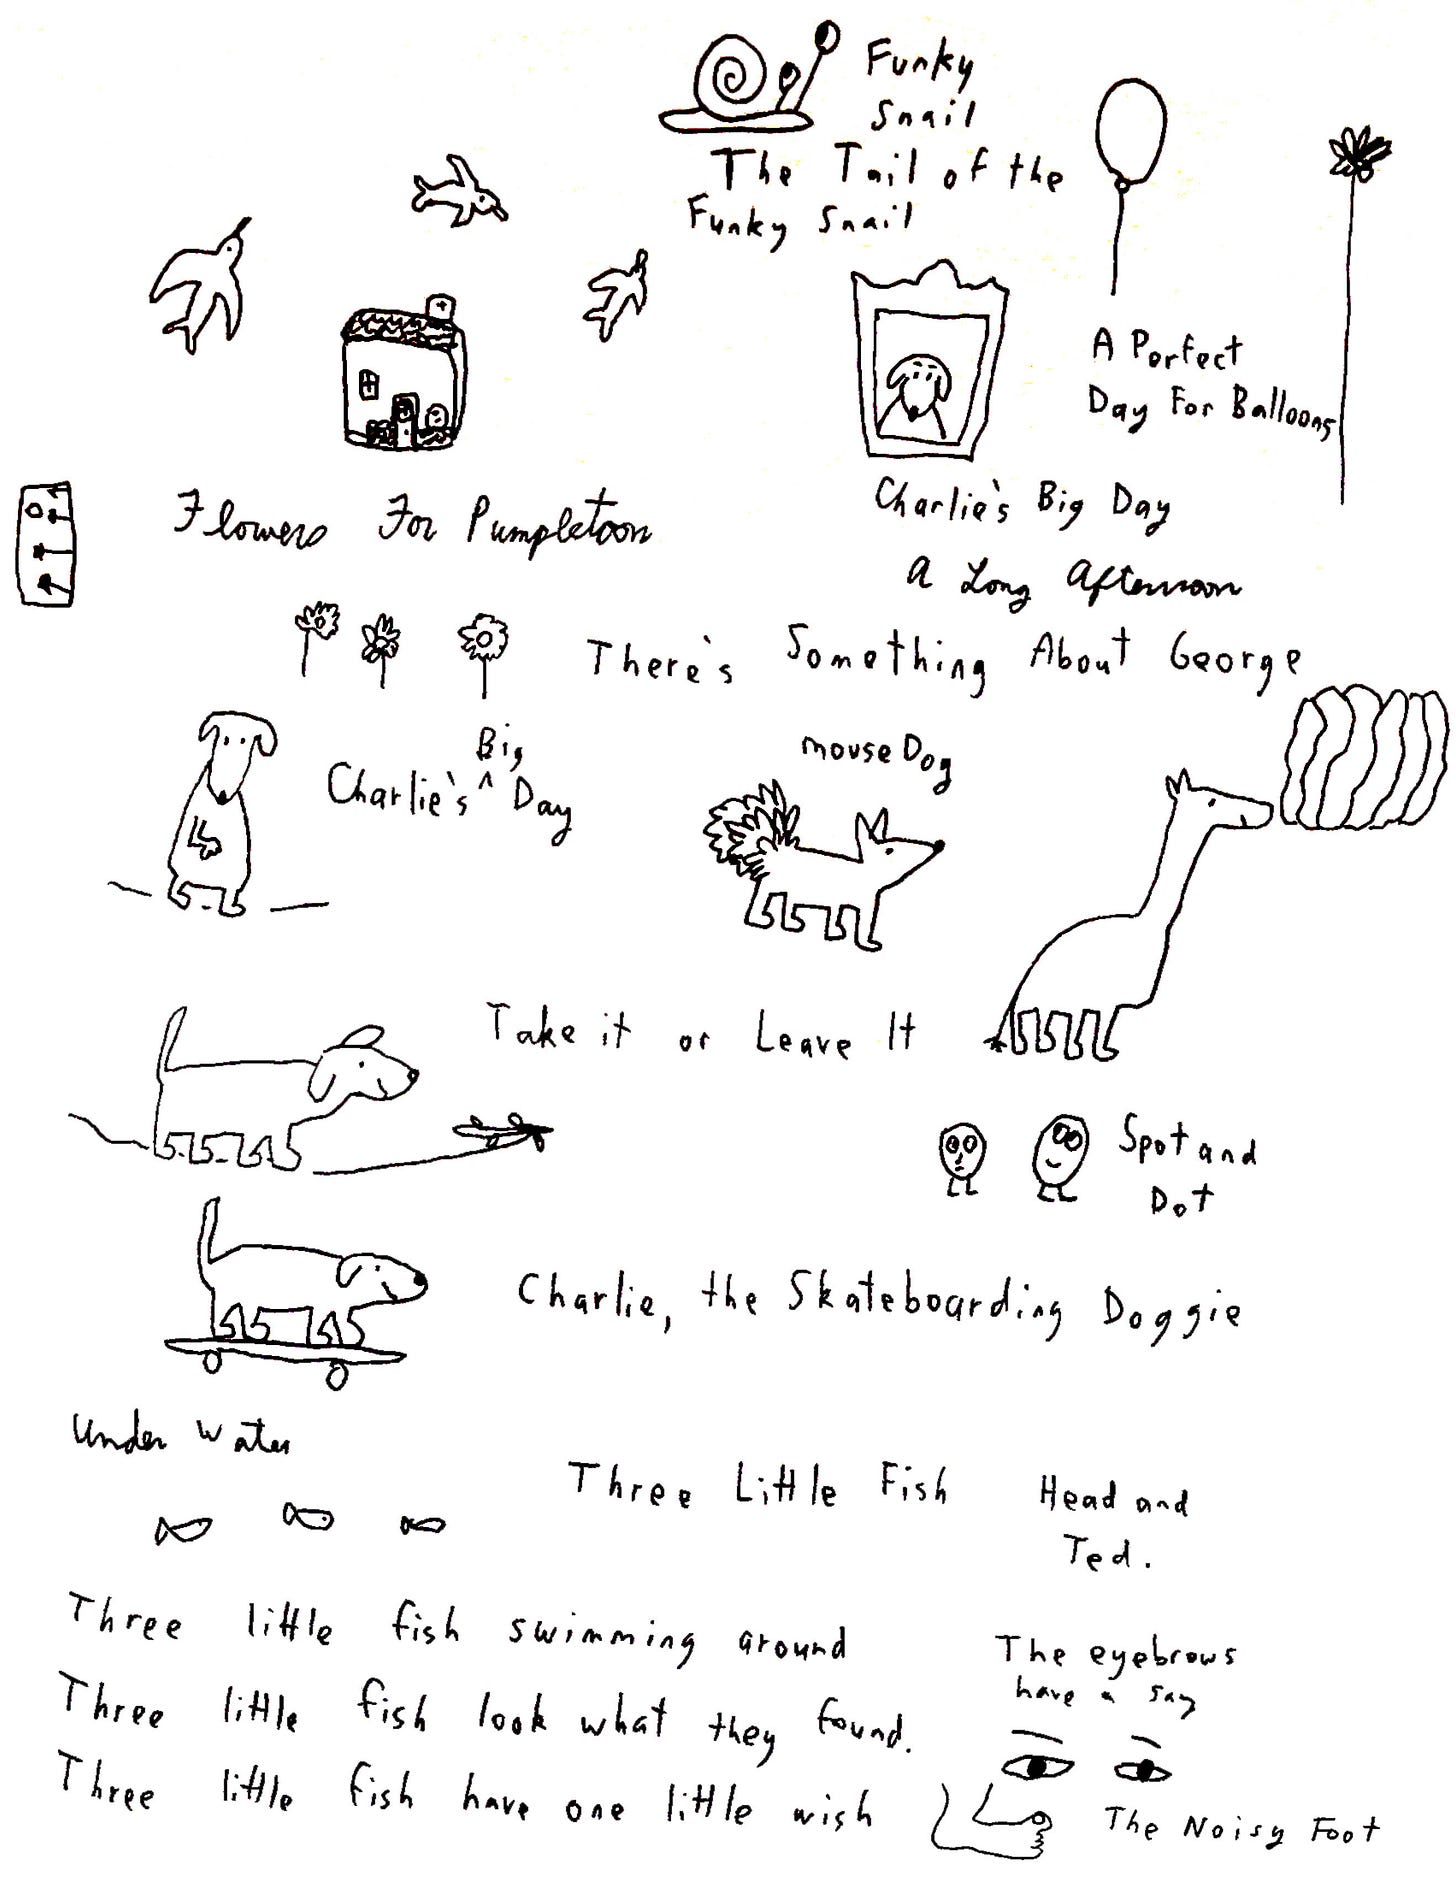 Funky
Snail
The Tail of the
Funky Snail
A Perfect
Day For Balloons
Flowers For Pumpletoon
Charlie's Big Day
A Long Afternoon
There's Something About George
Charlie's ^ Big Day
mouse Dog
Take it or Leave It
Spot and
Dot
Charlie, the Skateboarding Doggie
Under Water
Three Little Fish
Head and
Ted.
Three little fish swimming around
Three little fish look what they found.
Three little fish have one little wish
The eyebrows
have a say
The Noisy Foot